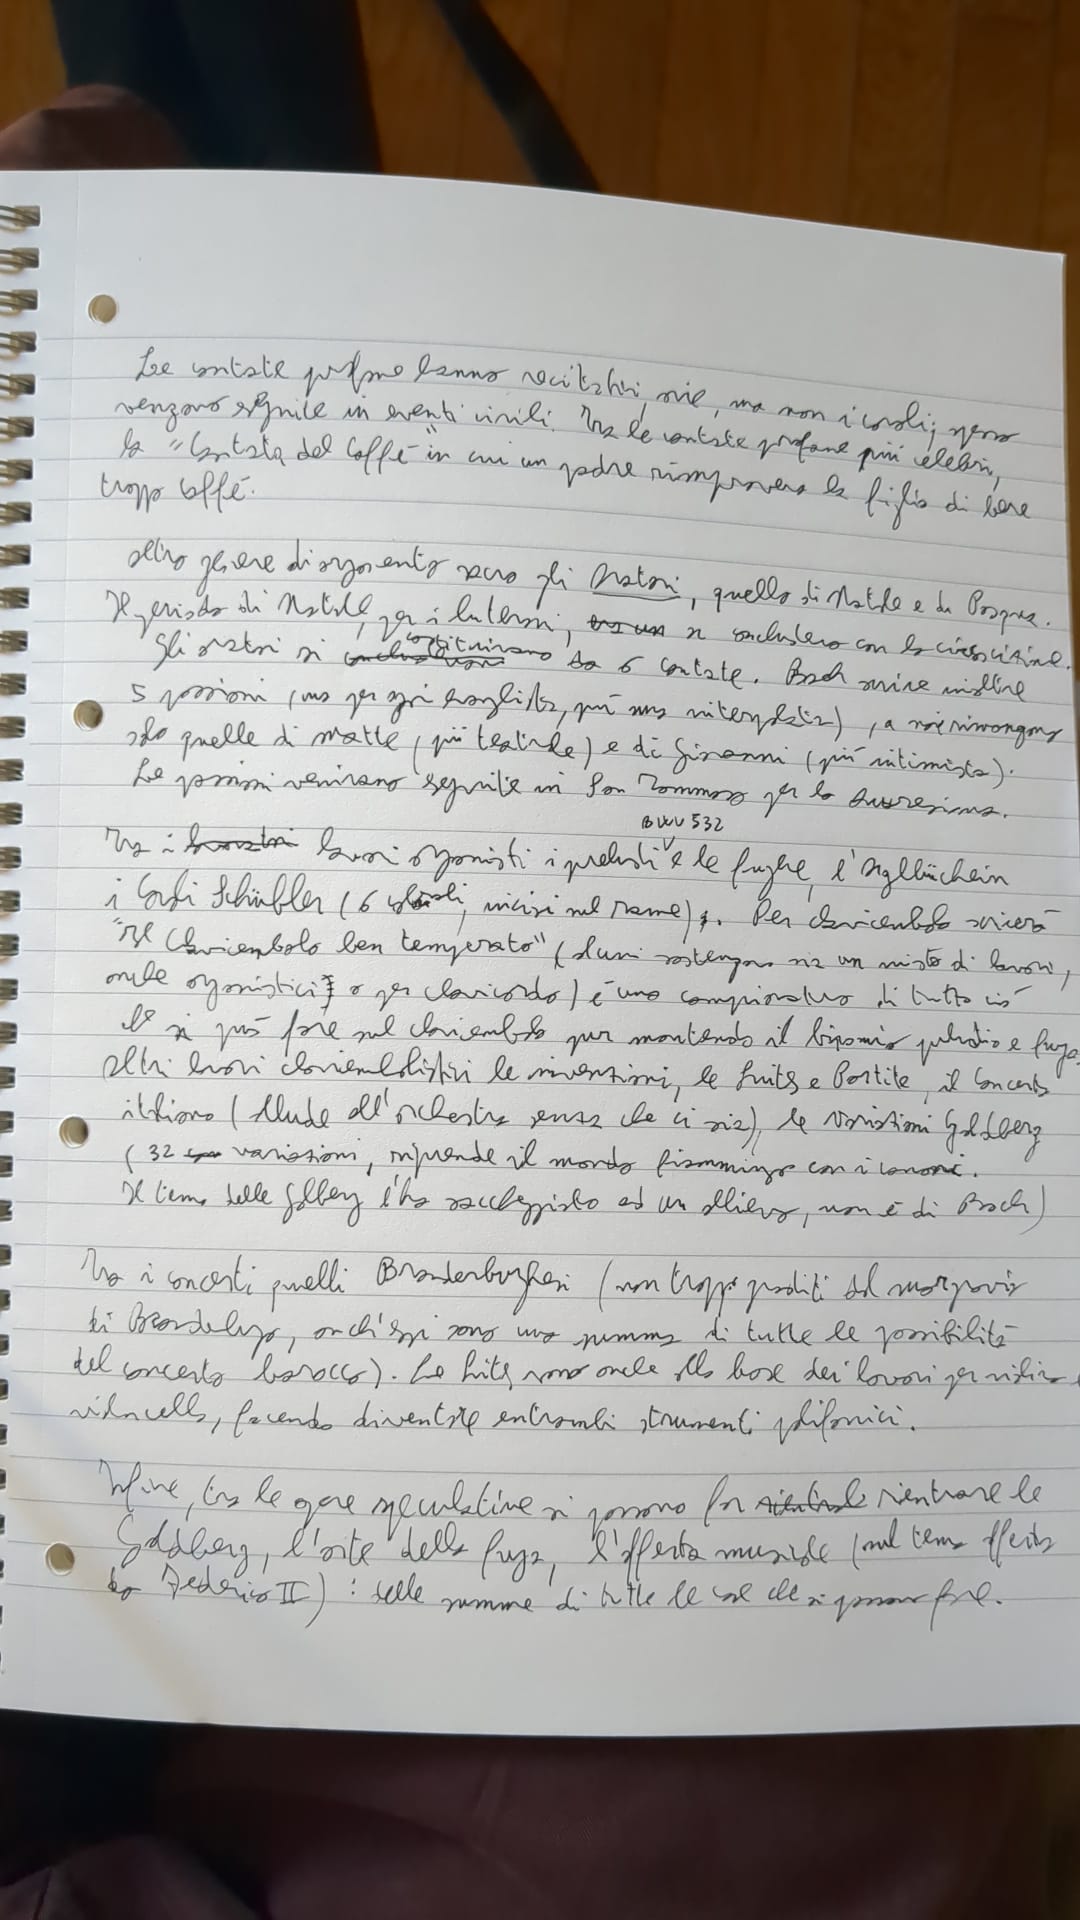 Le cantate profane hanno recitativi, arie, ma non i corali; spesso
vengono eseguite in eventi civili. Tra le cantate profane più celebri,
la "Cantata del Caffè" in cui un padre rimprovera la figlia di bere
troppo caffè.
Altro genere di argomento sacro gli Oratori, quello di Natale e da Pasqua.
Il periodo di Natale, per i luterani, si concludeva con la circoncisione.
Gli oratori si costituivano da 6 cantate. Bach scrive inoltre
5 passioni (una per ogni evangelista, più una interpolata), a noi rimangono
solo quelle di Matteo (più teatrale) e di Giovanni (più intimista).
Le passioni venivano eseguite in San Tommaso per la Quaresima.
BWV 532
Tra i lavori organisti i preludi e le fughe, l'Orgelbüchlein
i Corali Schübler (6 corali, incisi nel rame). Per clavicembalo scriverà
"Il Clavicembalo ben temperato" (alcuni sostengono sia un misto di lavori,
anche organistici o per clavicordo) è uno campionatura di tutto ciò
che si può fare sul clavicembalo pur mantendo il binomio preludio e fuga.
Altri lavori clavicembalistici le invenzioni, le Suites e Partite, il Concerto
italiano (allude all'orchestra senza che ci sia), le Variazioni Goldberg
(32 variazioni, riprende il mondo fiammingo con i canoni.
Il tema delle Golberg l'ha saccheggiato ad un allievo, non è di Bach)
Tra i concerti quelli Brandenburghesi (non troppo graditi dal margravio
di Brandeburgo, anch'essi sono una summa di tutte le possibilità
del concerto barocco). Le Suites sono anche alla base dei lavori per violino e
violoncello, facendo diventare entrambi strumenti polifonici.
Infine, tra le opere speculative si possono far rientrare le
Goldberg, l'arte della fuga, l'offerta musicale (sul tema offerto
da Federico II): delle summe di tutte le cose che si possono fare.